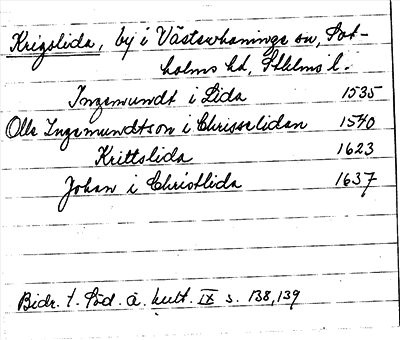 Krigslida, by i Västerhaninge sn, Sot-
holms hd, Sthlms l.
Ingemundt i Lida 1535
Olle Ingemundtson i Chrisselidan 1540
Krittslida 1623
Johan i Christlida 1637
Bidr. t. Söd. ä. kult. IX s. 138,139